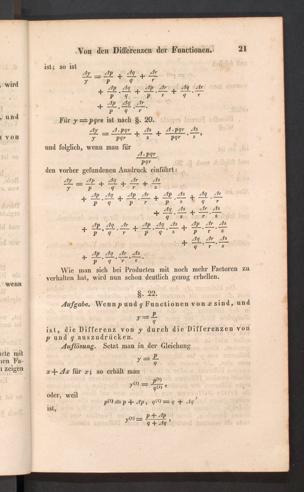 Von den Differenzen der Functionen. 21
ist; so ist
Δy/y = Δp/p + Δq/q + Δr/r
+ Δp/p . Δq/q + Δp/p . Δr/r + Δq/q . Δr/r
+ Δp/p . Δq/q . Δr/r.
Für y = pqrs ist nach §. 20.
Δy/y = Δ.pqr/pqr + Δs/s + Δ.pqr/pqr . Δs/s,
und folglich, wenn man für
Δ.pqr/pqr
den vorher gefundenen Ausdruck einführt:
Δy/y = Δp/p + Δq/q + Δr/r + Δs/s
+ Δp/p . Δq/q + Δp/p . Δr/r + Δp/p . Δs/s + Δq/q . Δr/r
+ Δq/q . Δs/s + Δr/r . Δs/s
+ Δp/p . Δq/q . Δr/r + Δp/p . Δq/q . Δs/s + Δp/p . Δr/r . Δs/s
+ Δq/q . Δr/r . Δs/s
+ Δp/p . Δq/q . Δr/r . Δs/s.
Wie man sich bei Producten mit noch mehr Factoren zu
verhalten hat, wird nun schon deutlich genug erhellen.
§. 22.
Aufgabe. Wenn p und q Functionen von x sind, und
y = p/q
ist, die Differenz von y durch die Differenzen von
p und q auszudrücken.
Auflösung. Setzt man in der Gleichung
y = p/q
x + Δx für x; so erhält man
y⁽¹⁾ = p⁽¹⁾/q⁽¹⁾,
oder, weil
p⁽¹⁾ = p + Δp, q⁽¹⁾ = q + Δq
ist,
y⁽¹⁾ = p + Δp/q + Δq,
wird
und
von
wenn
mit
Fa-
zeigen